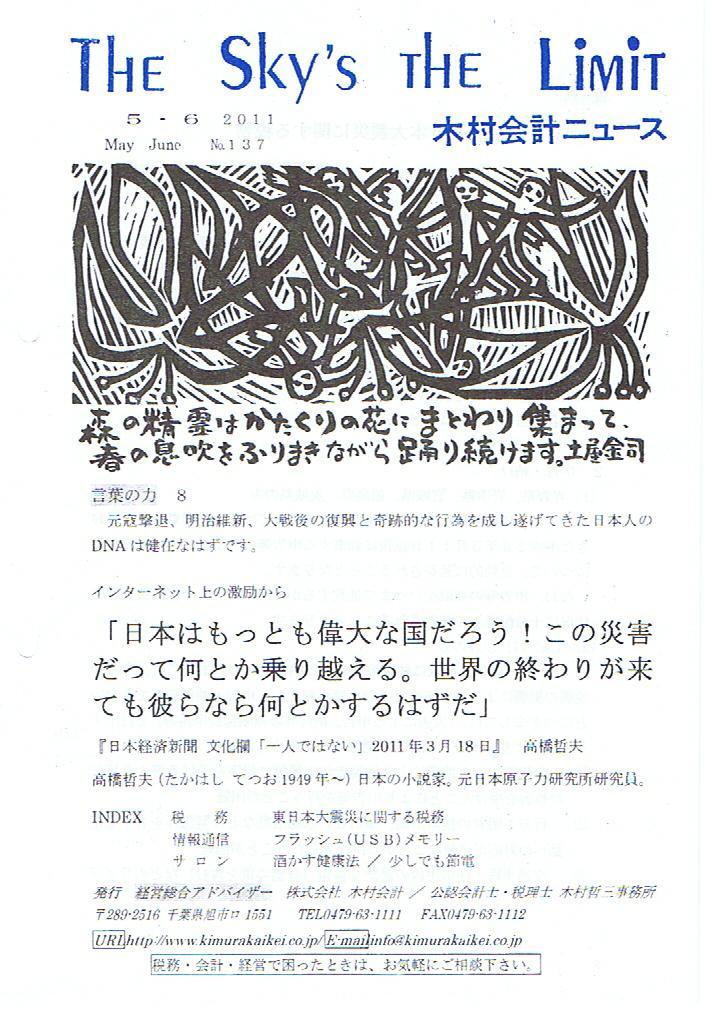 THE Sky's THE LiMiT
5 - 6 2011
May June No.137
木村会計ニュース
森の精霊はかたくりの花にまとわり集まって、
春の息吹をふりまきながら踊り続けます。土屋金司
言葉の力 8
元寇撃退、明治維新、大戦後の復興と奇跡的な行為を成し遂げてきた日本人の
DNAは健在なはずです。
インターネット上の激励から
「日本はもっとも偉大な国だろう！この災害
だって何とか乗り越える。世界の終わりが来
ても彼らなら何とかするはずだ」
『日本経済新聞 文化欄「一人ではない」2011年3月18日』 高橋哲夫
高橋哲夫（たかはし てつお1949年～）日本の小説家。元日本原子力研究所研究員。
INDEX 税 務 東日本大震災に関する税務
情報通信 フラッシュ（USB）メモリー
サ ロ ン 酒かす健康法 ／ 少しでも節電
発行 経営総合アドバイザー 株式会社 木村会計 ／ 公認会計士・税理士 木村哲三事務所
〒289-2516 千葉県旭市ロ1551 TEL0479-63-1111 FAX0479-63-1112
URL http://www.kimurakaikei.co.jp/ E-mail info@kimurakaikei.co.jp
税務・会計・経営で困ったときは、お気軽にご相談下さい。